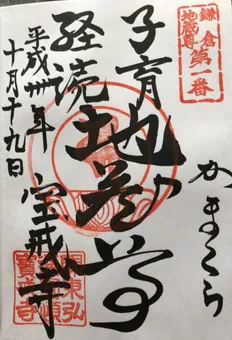 鎌倉
地蔵尊
第一番
かまくら
子育地蔵尊
経読
平成卅年
十月十九日
宝戒寺